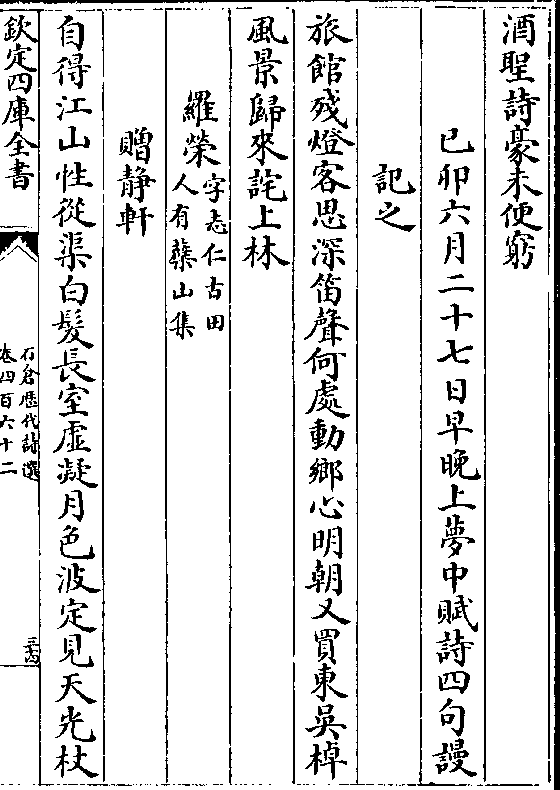 酒聖詩豪未便窮
己卯六月二十七日早晚上夢中賦詩四句謾
記之
旅館殘燈客思深笛聲何處動鄉心明朝又買東吳棹
風景歸來詫上林
羅榮字志仁古田
人有蘗山集
贈静軒
自得江山性從渠白髮長室虛凝月色波定見天光杖
欽定四庫全書
石倉歴代詩選
卷四百六十二